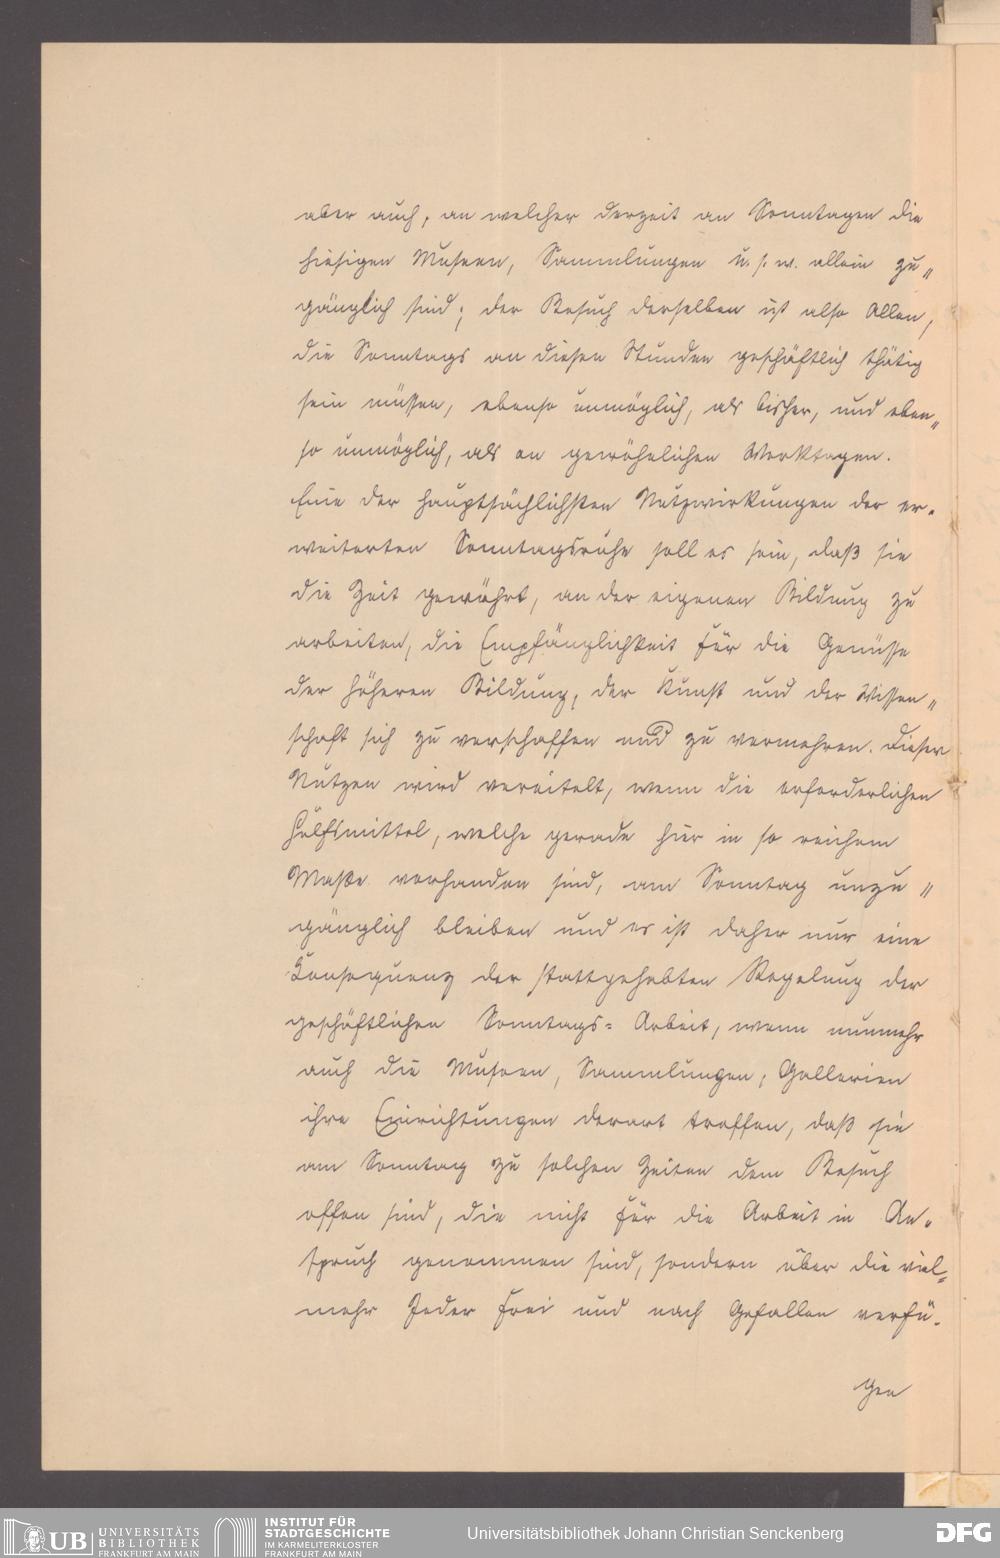 aber auch, an welcher derzeit an Sonntagen die
hiesigen Museen, Sammlungen u. s. w. allein zu"
gänglich sind; der Besuch derselben ist also Allen,
die Sonntags an diesen Stunden geschäftlich thätig
sein müssen, ebenso unmöglich, als bisher, und eben"
so unmöglich, als an gewöhnlichen Werktagen.
Eine der hauptsächlichsten Nutzwirkungen der er-
weiterten Sonntagsruhe soll es sein, daß sie
die Zeit gewährt, an der eigenen Bildung zu
arbeiten, die Empfänglichkeit für die Genüsse
der höheren Bildung, der Kunst und der Wissen"
schaft sich zu verschaffen und zu vermehren. Dieser
Nutzen wird vereitelt, wenn die erforderlichen
Hülfsmittel, welche gerade hier in so reichem
Maße vorhanden sind, am Sonntag unzu"
gänglich bleiben und es ist daher nur eine
Consequenz der stattgehabten Regelung der
geschäftlichen Sonntags= Arbeit, wenn nunmehr
auch die Museen, Sammlungen, Gallerien
ihre Einrichtungen derart treffen, daß sie
am Sonntag zu solchen Zeiten dem Besuch
offen sind, die nicht für die Arbeit in An-
spruch genommen sind, sondern über die viel=
mehr Jeder frei und nach Gefallen verfü-
gen
UB UNIVERSITÄTS
BIBLIOTHEK
FRANKFURT AM MAIN
INSTITUT FÜR
STADTGESCHICHTE
IM KARMELITERKLOSTER
FRANKFURT AM MAIN
Universitätsbibliothek Johann Christian Senckenberg
DFG